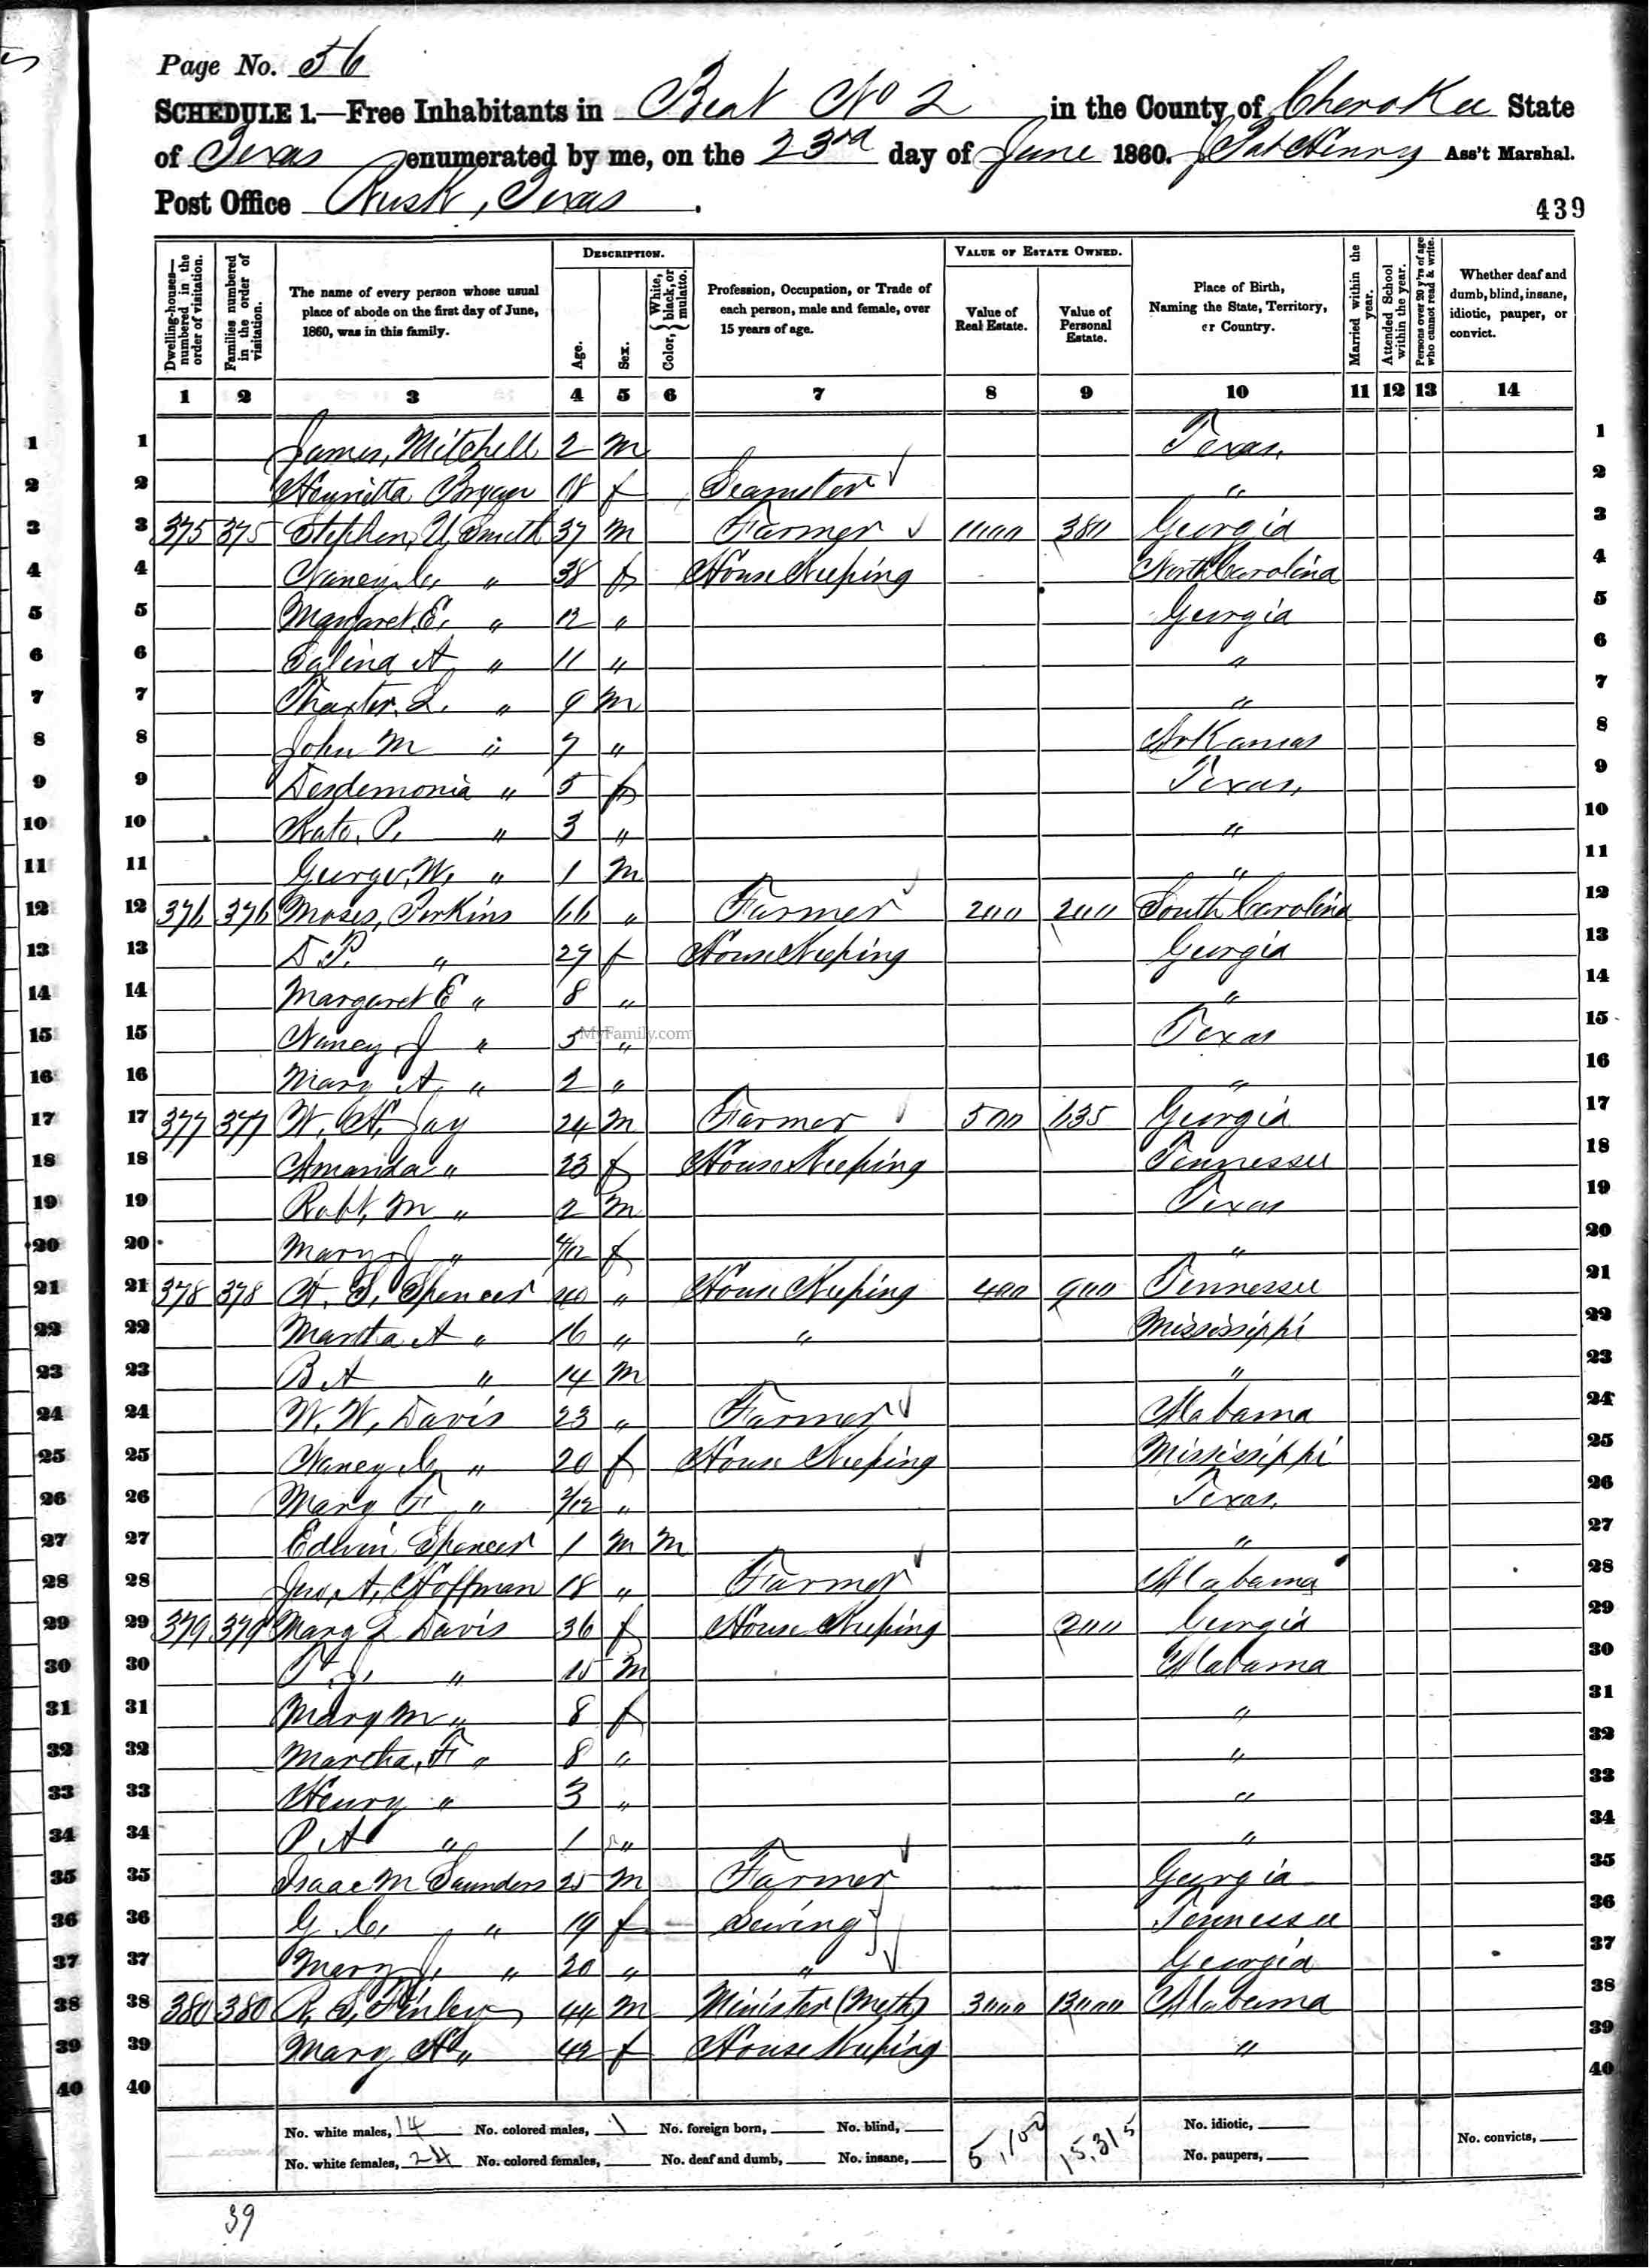 Page No. 56
SCHEDULE 1.—Free Inhabitants in Beat No 2 in the County of Cherokee State
of Texas enumerated by me, on the 23rd day of June 1860. Pat Henry Ass't Marshal.
Post Office Rusk, Texas.
439
Dwelling-houses—numbered in the order of visitation. Families numbered in the order of visitation. The name of every person whose usual place of abode on the first day of June, 1860, was in this family. Description. Age. Sex. Color, { White, black, or mulatto. Profession, Occupation, or Trade of each person, male and female, over 15 years of age. Value of Estate Owned. Value of Real Estate. Value of Personal Estate. Place of Birth, Naming the State, Territory, or Country. Married within the year. Attended School within the year. Persons over 20 y'rs of age who cannot read & write. Whether deaf and dumb, blind, insane, idiotic, pauper, or convict.
1 2 3 4 5 6 7 8 9 10 11 12 13 14
1 James, Mitchell 2 m Texas, 1
2 Henrietta 18 f 〃 2
3 375 375 Stephen, U, Smith 37 m Farmer 1000 380 Georgia 3
4 Nancy, C, 〃 38 f House Keeping North Carolina 4
5 Margaret, E, 〃 12 〃 Georgia 5
6 Salina A, 〃 11 〃 〃 6
7 Thaxter, L. 〃 9 m 〃 7
8 John M 〃 7 〃 Arkansas 8
9 Desdemonia 〃 5 f Texas, 9
10 Kate, P, 〃 3 〃 〃 10
11 George, W, 〃 1 m 〃 11
12 376 376 Moses, Perkins 66 〃 Farmer 200 200 South Carolina 12
13 D P. 〃 27 f House Keeping Georgia 13
14 Margaret E 〃 8 〃 〃 14
15 Nancy, J 〃 5 〃 Texas 15
MyFamily.com
16 Mary A, 〃 2 〃 〃 16
17 377 377 W. H, Jay 24 m Farmer 500 635 Georgia 17
18 Amanda 〃 23 f House Keeping Tennessee 18
19 Robt, M 〃 2 m Texas 19
20 Mary J 〃 4/12 f 〃 20
21 378 378 A. S, Spencer 40 〃 House Keeping 400 900 Tennessee 21
22 Martha A 〃 16 〃 〃 Mississippi 22
23 B A 〃 14 m 〃 23
24 W, W, Davis 23 〃 Farmer Alabama 24
25 Nancy 〃 20 f House Keeping Mississippi 25
26 Mary F 〃 3/12 〃 Texas, 26
27 Edwin Spencer 1 m m 〃 27
28 Jno, A, Hoffman 18 〃 Farmer Alabama 28
29 379 379 Mary L Davis 36 f House Keeping 200 Georgia 29
30 T. J. 〃 15 m Alabama 30
31 Mary M 〃 8 f 〃 31
32 Martha, F 〃 8 〃 〃 32
33 Henry 〃 3 〃 〃 33
34 P A 〃 1 〃 〃 34
35 Isaac M Saunders 25 m Farmer Georgia 35
36 G. C, 〃 19 f Sewing Tennessee 36
37 Mary J, 〃 20 〃 〃 Georgia 37
38 380 380 R. S, Finley 44 m Minister (Meth) 3000 13000 Alabama 38
39 Mary H 〃 42 f House Keeping 〃 39
40 40
No. white males, 14 No. colored males, 1 No. foreign born, No. blind, 5,100 15,315 No. idiotic,
No. white females, 24 No. colored females, No. deaf and dumb, No. insane, No. paupers, No. convicts,
39